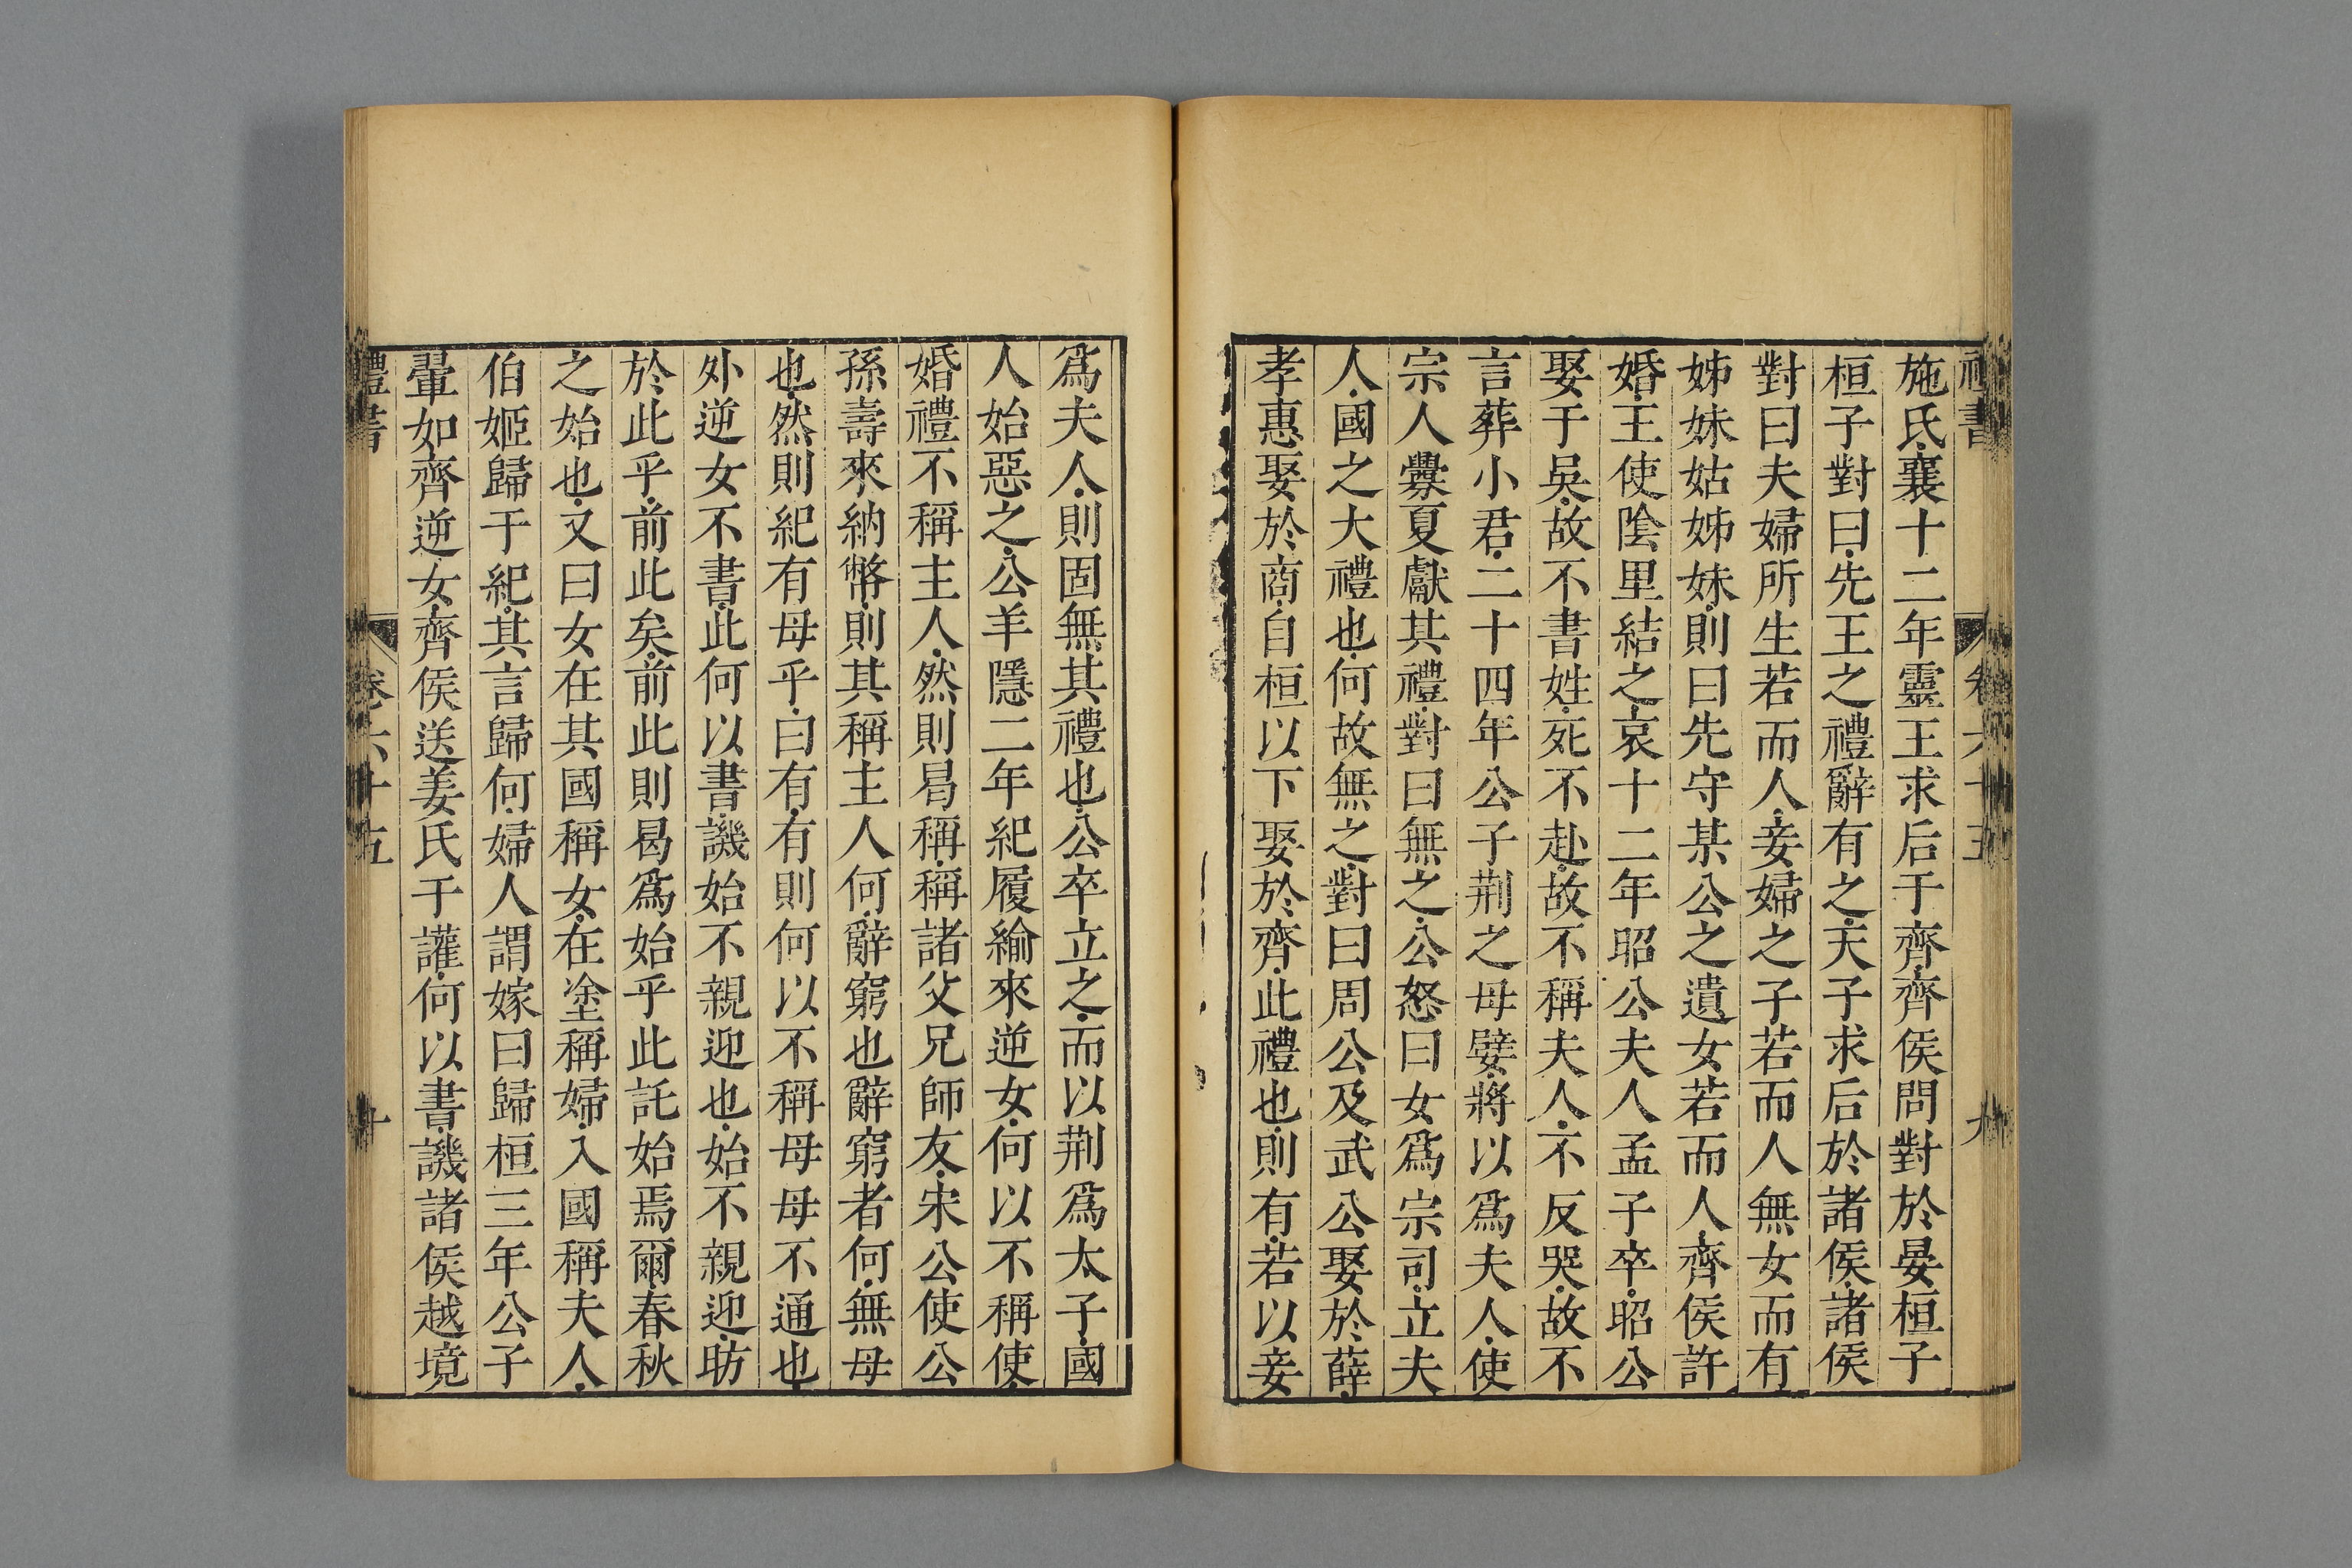 禮書 卷六十五 九
施氏襄十二年靈王求后于齊齊侯問對於晏桓子
桓子對曰先王之禮辭有之天子求后於諸侯諸侯
對曰夫婦所生若而人妾婦之子若而人無女而有
姊妹姑姊妹則曰先守某公之遺女若而人齊侯許
婚王使陰里結之哀十二年昭公夫人孟子卒昭公
娶于吳故不書姓死不赴故不稱夫人不反哭故不
言葬小君二十四年公子荆之母嬖將以爲夫人使
宗人釁夏獻其禮對曰無之公怒曰女爲宗司立夫
人國之大禮也何故無之對曰周公及武公娶於薛
孝惠娶於商自桓以下娶於齊此禮也則有若以妾
爲夫人則固無其禮也公卒立之而以荆爲太子國
人始惡之公羊隱二年紀履綸來逆女何以不稱使
婚禮不稱主人然則曷稱稱諸父兄師友宋公使公
孫壽來納幣則其稱主人何辭窮也辭窮者何無母
也然則紀有母乎曰有有則何以不稱母母不通也
外逆女不書此何以書譏始不親迎也始不親迎昉
於此乎前此矣前此則曷爲始乎此託始焉爾春秋
之始也又曰女在其國稱女在塗稱婦入國稱夫人
伯姬歸于紀其言歸何婦人謂嫁曰歸桓三年公子
翬如齊逆女齊侯送姜氏于讙何以書譏諸侯越境
禮書 卷六十五 十